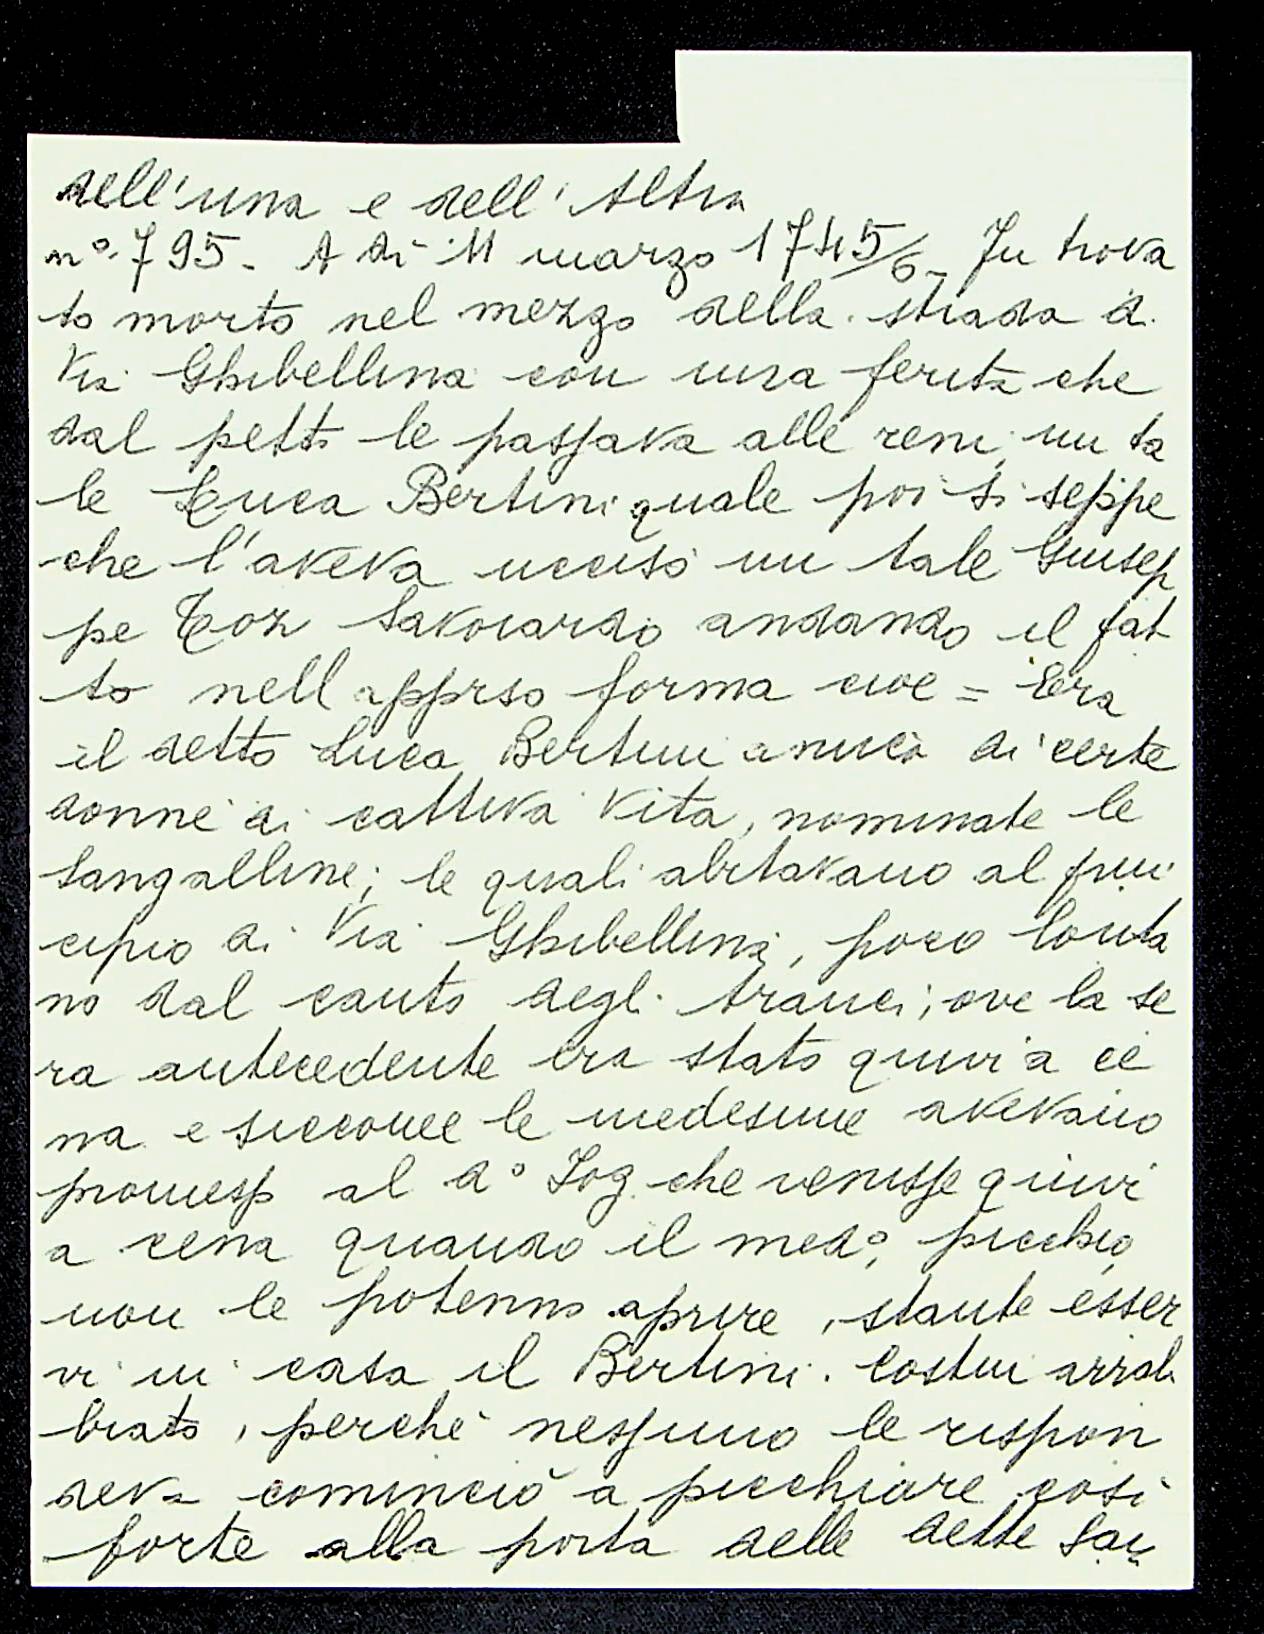 dell'una e dell'Altra
nº 795. A dì 11 marzo 1745/6. Fu trova
to morto nel mezzo della strada di
Via Ghibellina con una ferita che
dal petto le passava alle reni, un ta
le Luca Bertini quale poi si seppe
che l'aveva ucciso un tale Giusep
pe Savoiardo andando il fat
to nell apprso forma cioe = Era
il detto Luca Bertini amico di certe
donne di cattiva vita, nominate le
Sangalline; le quali abitavano al prin
cipio di Via Ghibellina, poco lonta
no dal canto degli Aranci; ove la se
ra antecedente era stato quivi a ce
na e siccome le medesime avevano
promesso al dº Fog. che venisse quivi
a cena quando il medº, picchiò,
non le poterno aprire, stante esser
vi in casa il Bertini. Costui arrab
biato, perchè nessuno le rispon
deva cominciò a picchiare così
forte alla porta delle dette San